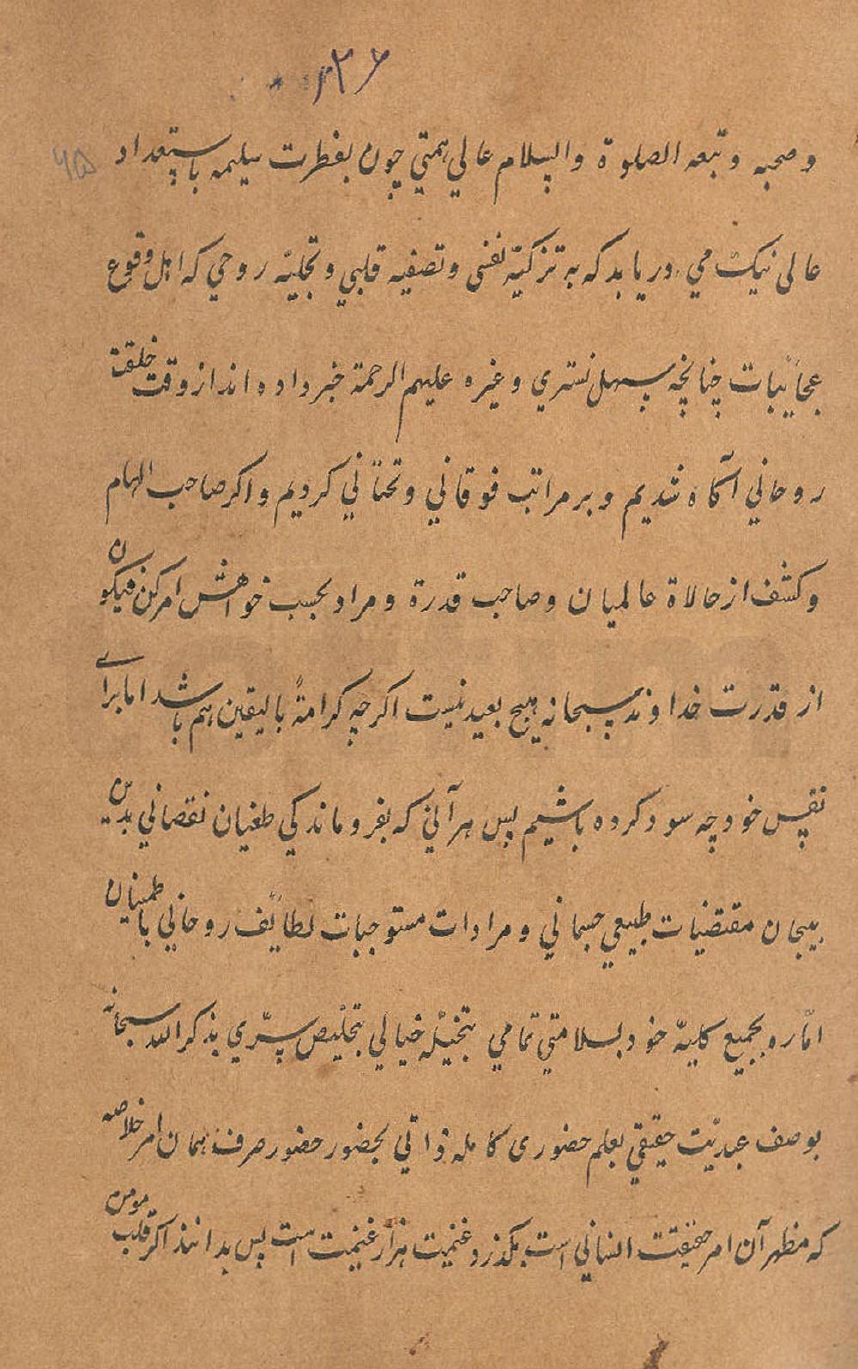 ۱۳۶
۶۵
وصحبه وتبعه الصلوة والسلام عالي همتي چون بفطرت سليمه باستعداد
عالى نيك مي دريابد كه به تزكيهٔ نفسى وتصفيه قلبي وتجليه روحي كه اهل وقوع
عجائبات چنانچه سهل تستري وغيره عليهم الرحمة خبر داده اند از وقت خلقت
روحاني آكاه شديم وبر مراتب فوقاني وتحتاني كرديم واكر صاحب الهام
وكشف از حالاة عالميان وصاحب قدرة ومراد بحسب خواهش امر كن فيكون
از قدرت خداوند سبحانه هيچ بعيد نيست اكرچه كرامةً باليقين هم باشد اما براے
نفس خود چه سود كرده باشيم پس هر آني كه بفروماندكي طغيان نقصاني بدين
بيجان مقتضيات طبيعي جسماني ومرادات مستوجبات لطايف روحاني باطمينان
امّاره بجميع كليهٔ خود بسلامتي تمامي بتخيله خيالي بتخليص سرّي بذكر الله سبحانه
بوصف عبديّت حقيقي بعلم حضورى كامله ذاتي بحضور حضور صرف همان امر خلاصه
كه مظهر آن امر حقيقت انساني است بكذرد غنيمت هزار غنيمت است پس بدانند اكر قلب مومن